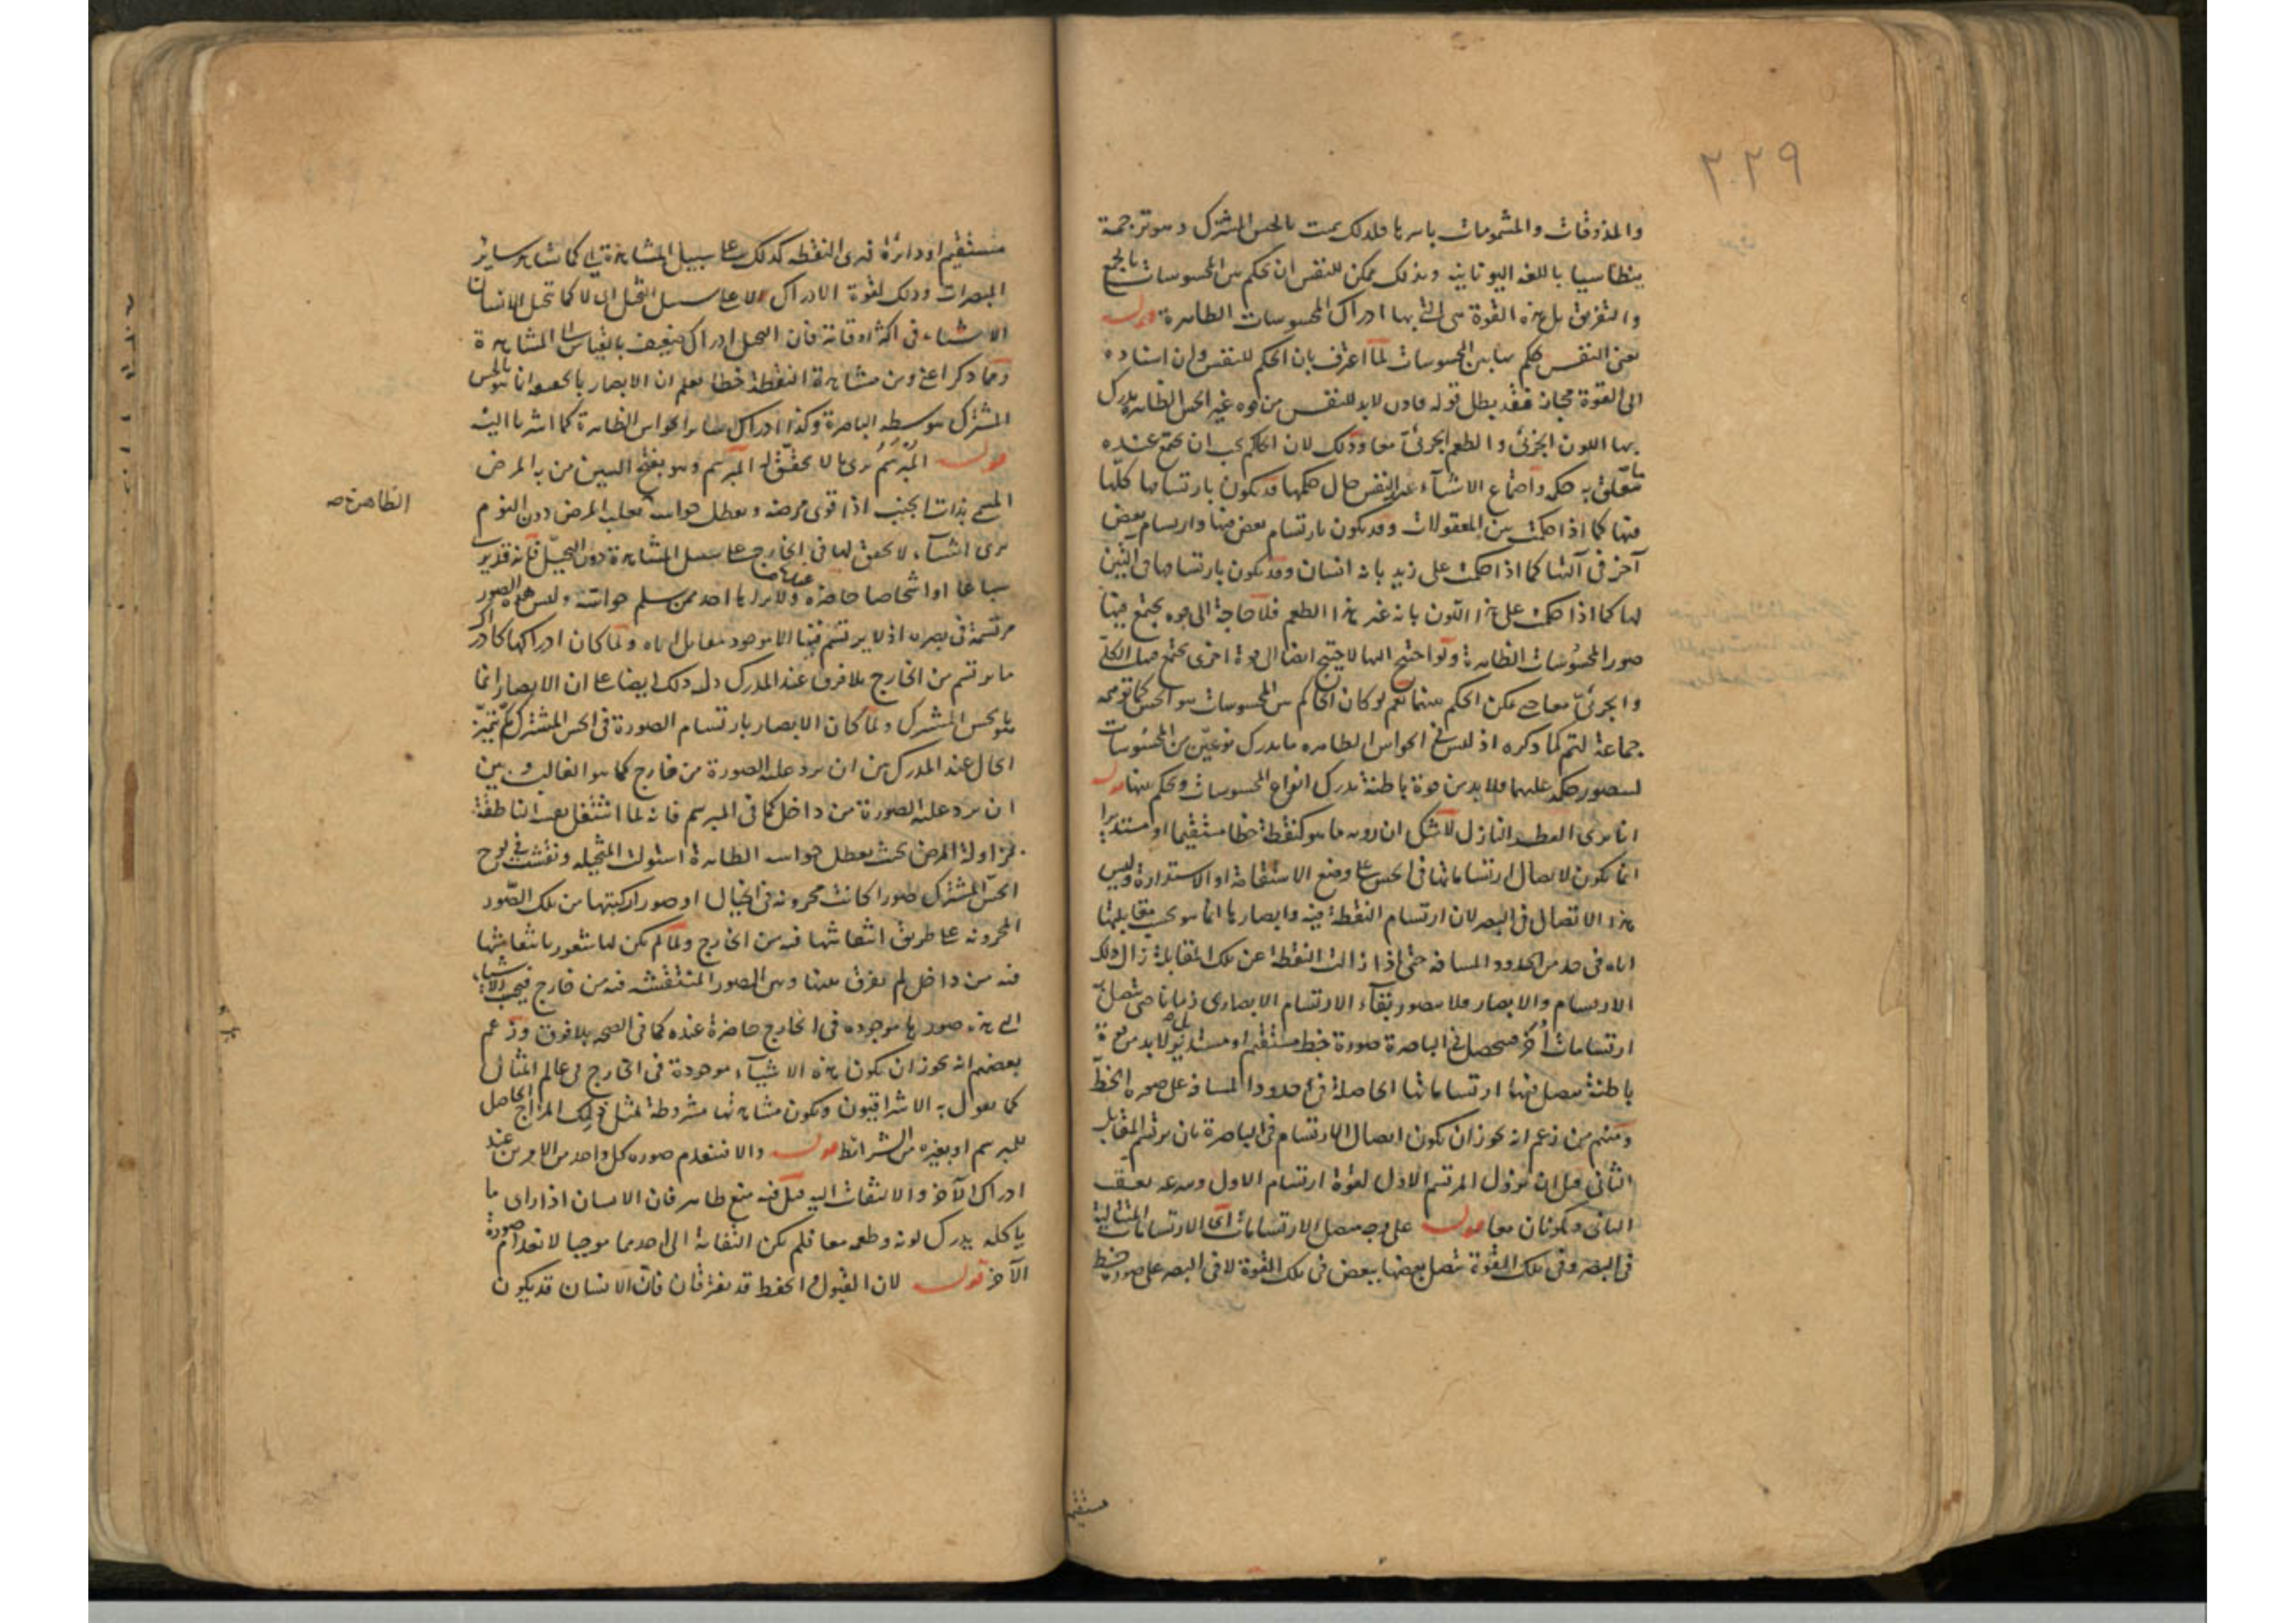 ٣٠٢٩
والمذوقات والمشمومات باسرها فلذلك سمت بالحس المشترك وهو ترجمة
بنطاسيا باللغه اليونانيه وبذلك يمكن للنفس ان تحكم بين المحسوسات بالجمع
والتفريق بل هذه القوة هى التى بها ادراك المحسوسات الظاهرة قوله
يعنى النفس تحكم بها بين المحسوسات لما اعترف بان الحكم للنفس وان اسناده
الى القوة مجاز فقد بطل قوله فاذن لابد للنفس من قوه غير الحس الظاهر يدرك
بها اللون الجزئى والطعم الجزئى معا وذلك لان الحاكم يجب ان يجتمع عنده
ما يتعلق به حكمه واجتماع الاشياء عند النفس حال حكمها قد يكون بارتسامها كلها
فيها كما اذا حكمت بين المعقولات وقد يكون بارتسام بعض فيها وارتسام بعض
آخر فى آلتها كما اذا حكمت على زيد بانه انسان وقد يكون بارتسامها فى التين
لها كما اذا حكمت على هذا اللون بانه غير هذا الطعم فلا حاجة الى قوه يجتمع فيها
صور المحسوسات الظاهرة ولو احتيج اليها لاحتيج ايضا الى قوة اخرى يجتمع فيها الكلى
والجزئى معا حتى يمكن الحكم بينهما نعم لو كان الحاكم بين المحسوسات هو الحس كما توهمه
جماعة لتم كما ذكره اذ ليس فى الحواس الظاهره ما يدرك نوعين من المحسوسات
ليتصور حكمه عليهما فلا بد من قوة باطنة تدرك انواع المحسوسات وتحكم بينها قوله
انا نرى القطر النازل لا شك ان رويه ما هو كنقطة خطا مستقيما او مستديرا
انما يكون لاتصال ارتساماتها فى الحس على وضع الاستقامة او الاستدارة وليس
هذا الاتصال فى البصر لان ارتسام النقطة فيه وابصارها انما هو بحسب مقابلتها
اياه فى حد من الحدود المسافه حتى اذا زالت النقطة عن تلك المقابلة زال ذلك
الارتسام والابصار فلا يتصور بقاء الارتسام الابصارى زمانا حتى يتصل به
ارتسامات أخر فيحصل فى الباصرة صورة خط مستقيم او مستدير بل لابد من قوة
باطنة يتصل فيها ارتساماتها الحاصلة فى حدود المسافه على صوره الخط
ومنهم من زعم انه يجوز ان يكون اتصال الارتسام فى الباصرة بان يرتسم المقابل
الثانى قبل ان يزول المرتسم الاول لقوة ارتسام الاول وسرعه تعقب
الثانى ويكونان معا قوله على وجه يتصل الارتسامات اى الارتسامات المتتالية
فى البصر وفى تلك القوة يتصل بعضها ببعض فى تلك القوة لا فى البصر على صورة خط
مستقيم
مستقيم او دائرة فترى النقطه كذلك على سبيل المشاهدة اى كما تشاهد ساير
المبصرات وذلك لقوة الادراك لا على سبيل التخيل اى لا كما تخيل الانسان
الاشياء فى اكثر اوقاته فان التخيل ادراك ضعيف بالقياس الى المشاهدة
ومما ذكر اعنى من مشاهدة النقطة خطا يعلم ان الابصار بالحقيقه انما هو بالحس
المشترك بتوسط الباصرة وكذا ادراك ساير الحواس الظاهرة كما اشرنا اليه
قوله المُبَرسَم يرى ما لا تحقق له المبرسم وهو بفتح السين من به المرض
المسمى بذات الجنب اذا قوى مرضه وتعطل حواسه لغلبة المرض دون النوم
الظاهرة صح
يرى اشياء لا تحقق لها فى الخارج على سبيل المشاهدة دون التخيل فانه قد يرى
سباعا او اشخاصا حاضره عنده ولا يراها احد ممن سلم حواسه وليس هذه الصور
مرتسمة فى بصره اذ لا يرتسم فيها الا موجود مقابل اياه ولما كان ادراكها كادراك
ما يرتسم من الخارج بلا فرق عند المدرك دل ذلك ايضا على ان الابصار انما
هو بالحس المشترك ولما كان الابصار بارتسام الصورة فى الحس المشترك لم يتميز
الحال عند المدرك بين ان يرد عليه الصورة من خارج كما هو الغالب وبين
ان يرد عليه الصورة من داخل كما فى المبرسم فانه لما اشتغل نفسه الناطقة
بمزاولة المرض بحيث تعطل حواسه الظاهرة استولت المتخيله ونقشت فى لوح
الحس المشترك صورا كانت مخزونه فى الخيال او صورا ركبتها من تلك الصور
المخزونه على طريق انتقاشها فيه من الخارج ولما لم يكن لها شعور بانتقاشها
فيه من داخل لم تفرق بينها وبين الصور المنتقشه فيه من خارج فيحسب الاشياء
التى هذه صورها موجوده فى الخارج حاضرة عنده كما فى الصحه بلا فرق وزعم
بعضهم انه يجوز ان يكون هذه الاشياء موجودة فى الخارج فى عالم المثال
كما يقول به الاشراقيون ويكون مشاهدتها مشروطة بمثل ذلك المزاج الحاصل
للمبرسم او بغيره من الشرائط قوله والا فينعدم صوره كل واحد من الامرين عند
ادراك الآخر والالتفات اليه قيل فيه منع ظاهر فان الانسان اذا راى ما
ياكله يدرك لونه وطعمه معا فلم يكن التفاته الى احدهما موجبا لانعدام صورة
الآخر قوله لان القبول والحفظ قد يفترقان فان الانسان قد يكون